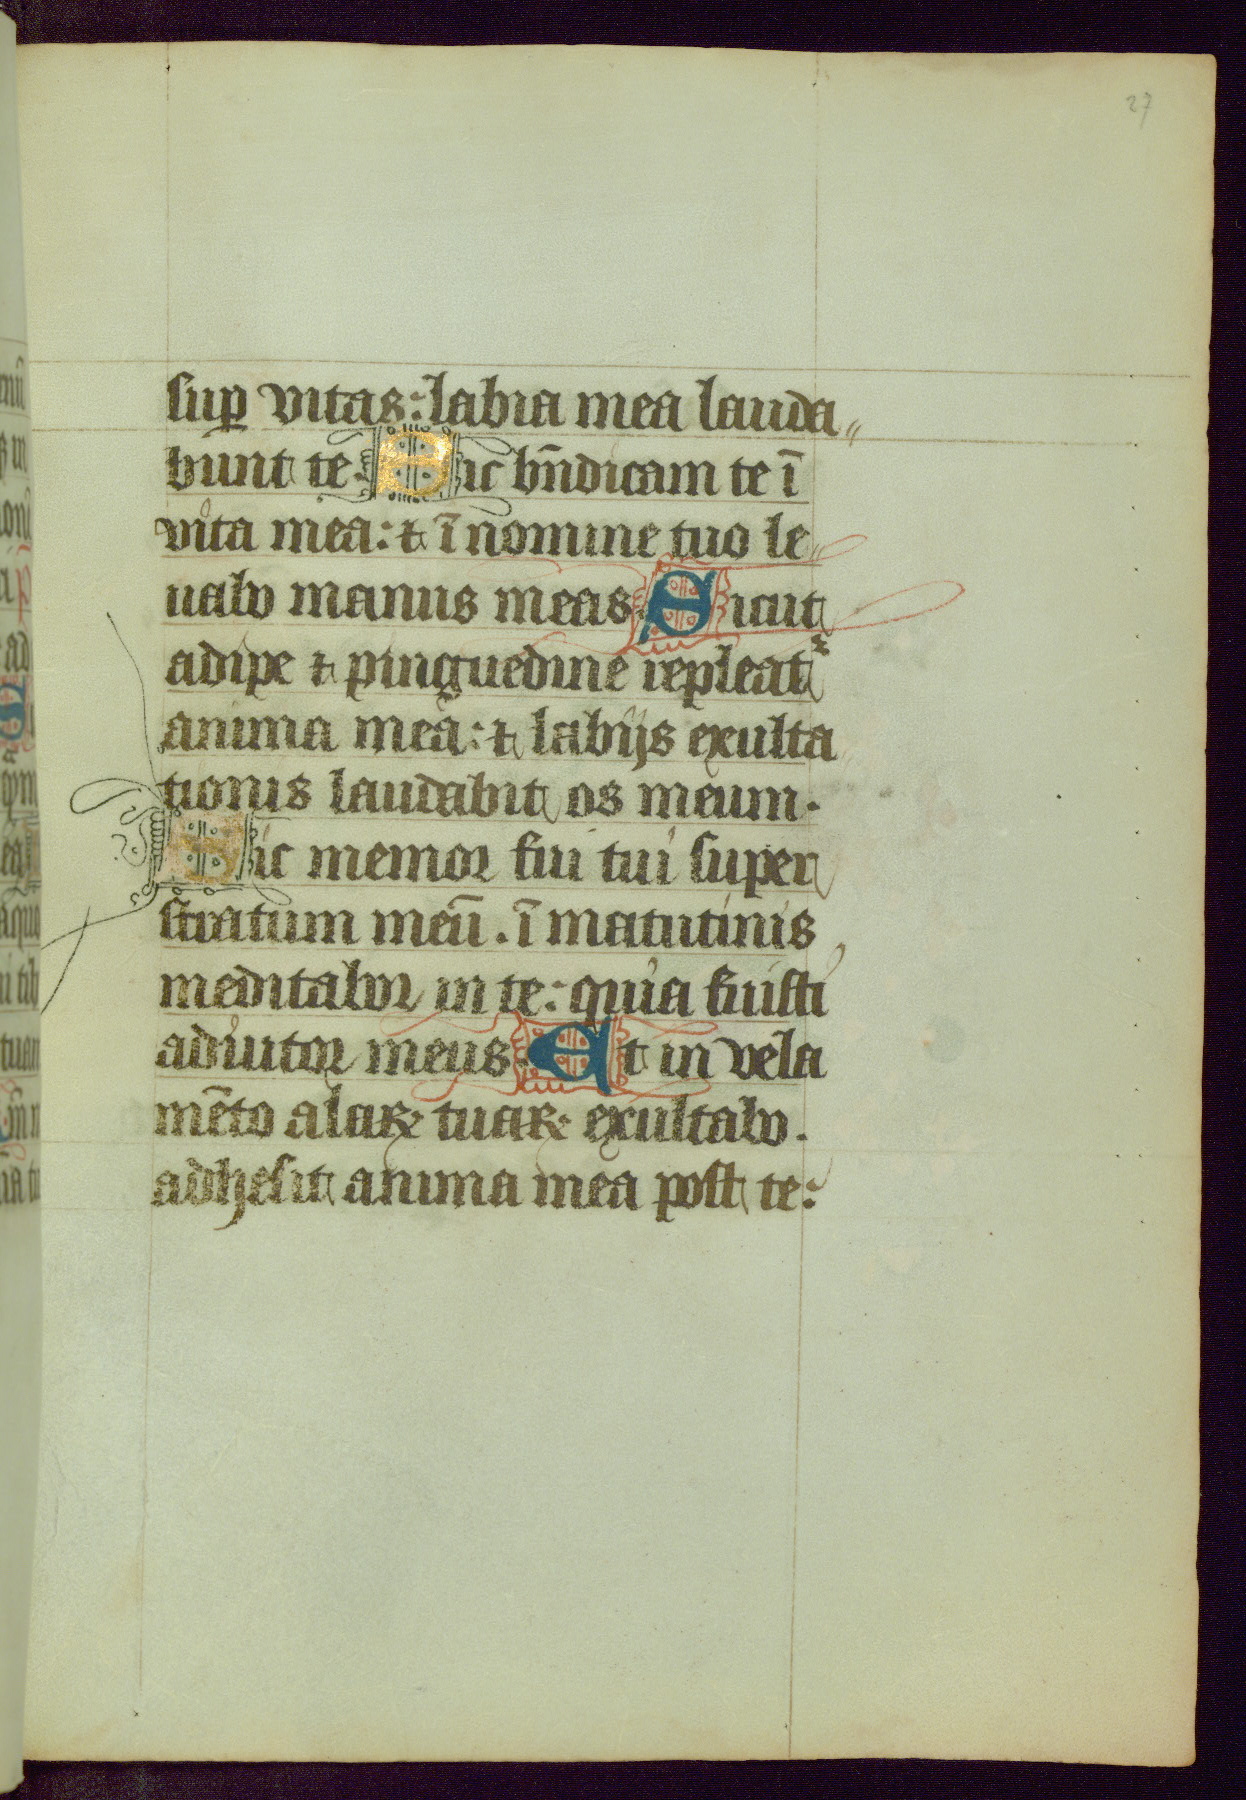 27
sup vitas: labia mea lauda
bunt te. Sic bn̄dicam te ī
vita mea: ⁊ ī nomine tuo le
uabo manus meas. Sicut
adipe ⁊ pinguedine repleat᷑
anima mea: ⁊ labijs exulta
tionis laudabit os meum.
Sic memor fui tui super
stratum meū. ī matutinis
meditabor in te: quia fuisti
adiutor meus. Et in vela
mēto alaꝝ tuaꝝ exultabo.
adhesit anima mea post te: